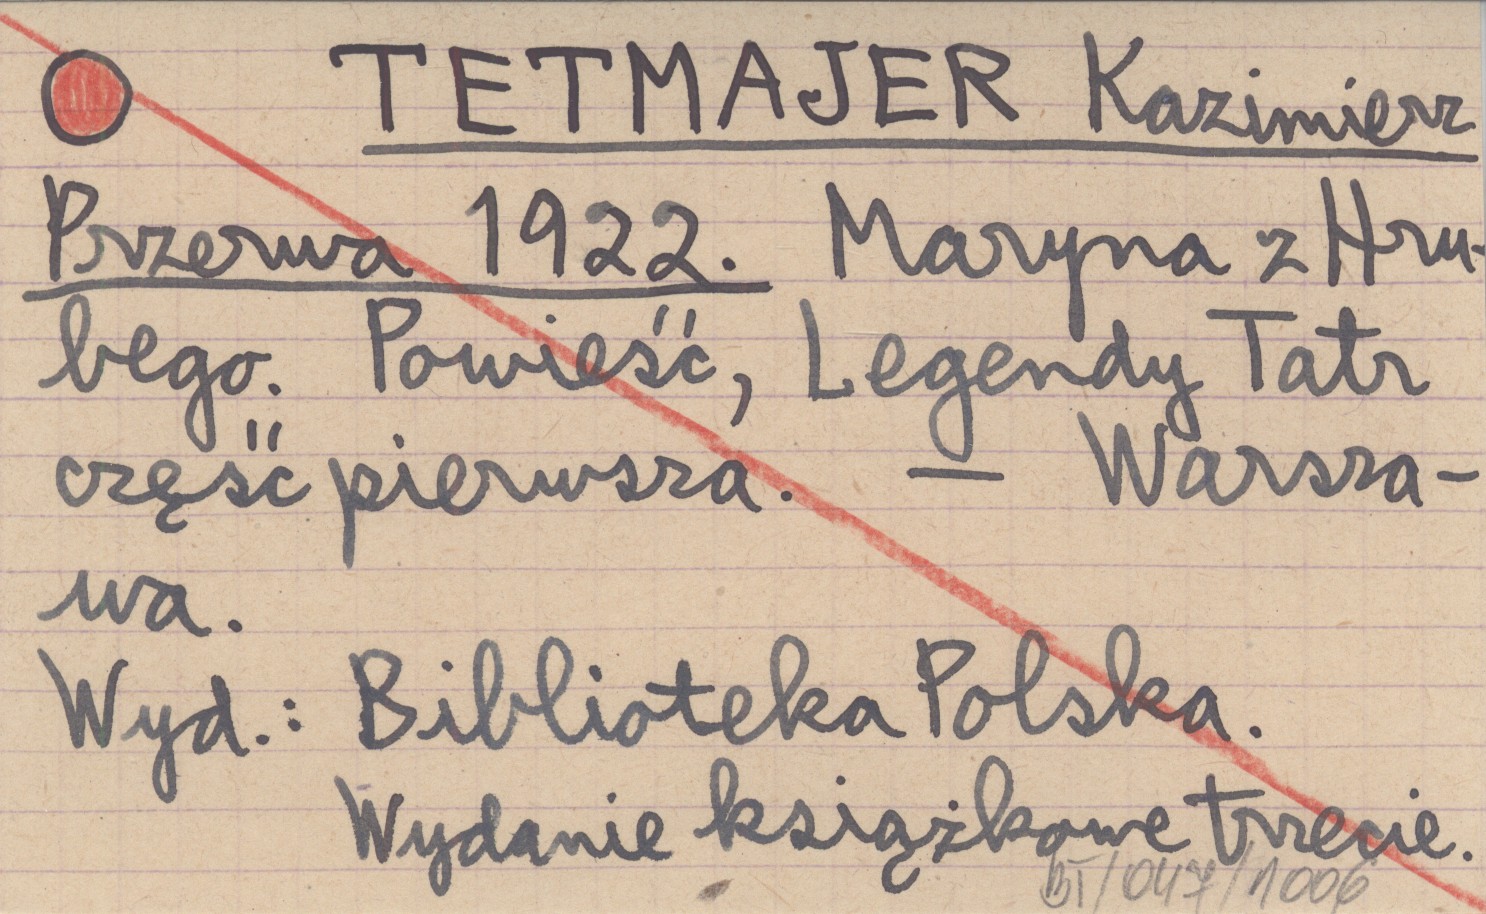 TETMAJER Kazimierz
Przerwa 1922. Maryna z Hru-
bego. Powieść, Legendy Tatr
część pierwsza. — Warsza-
wa.
Wyd.: Biblioteka Polska.
Wydanie książkowe trzecie.
BT/047/1006